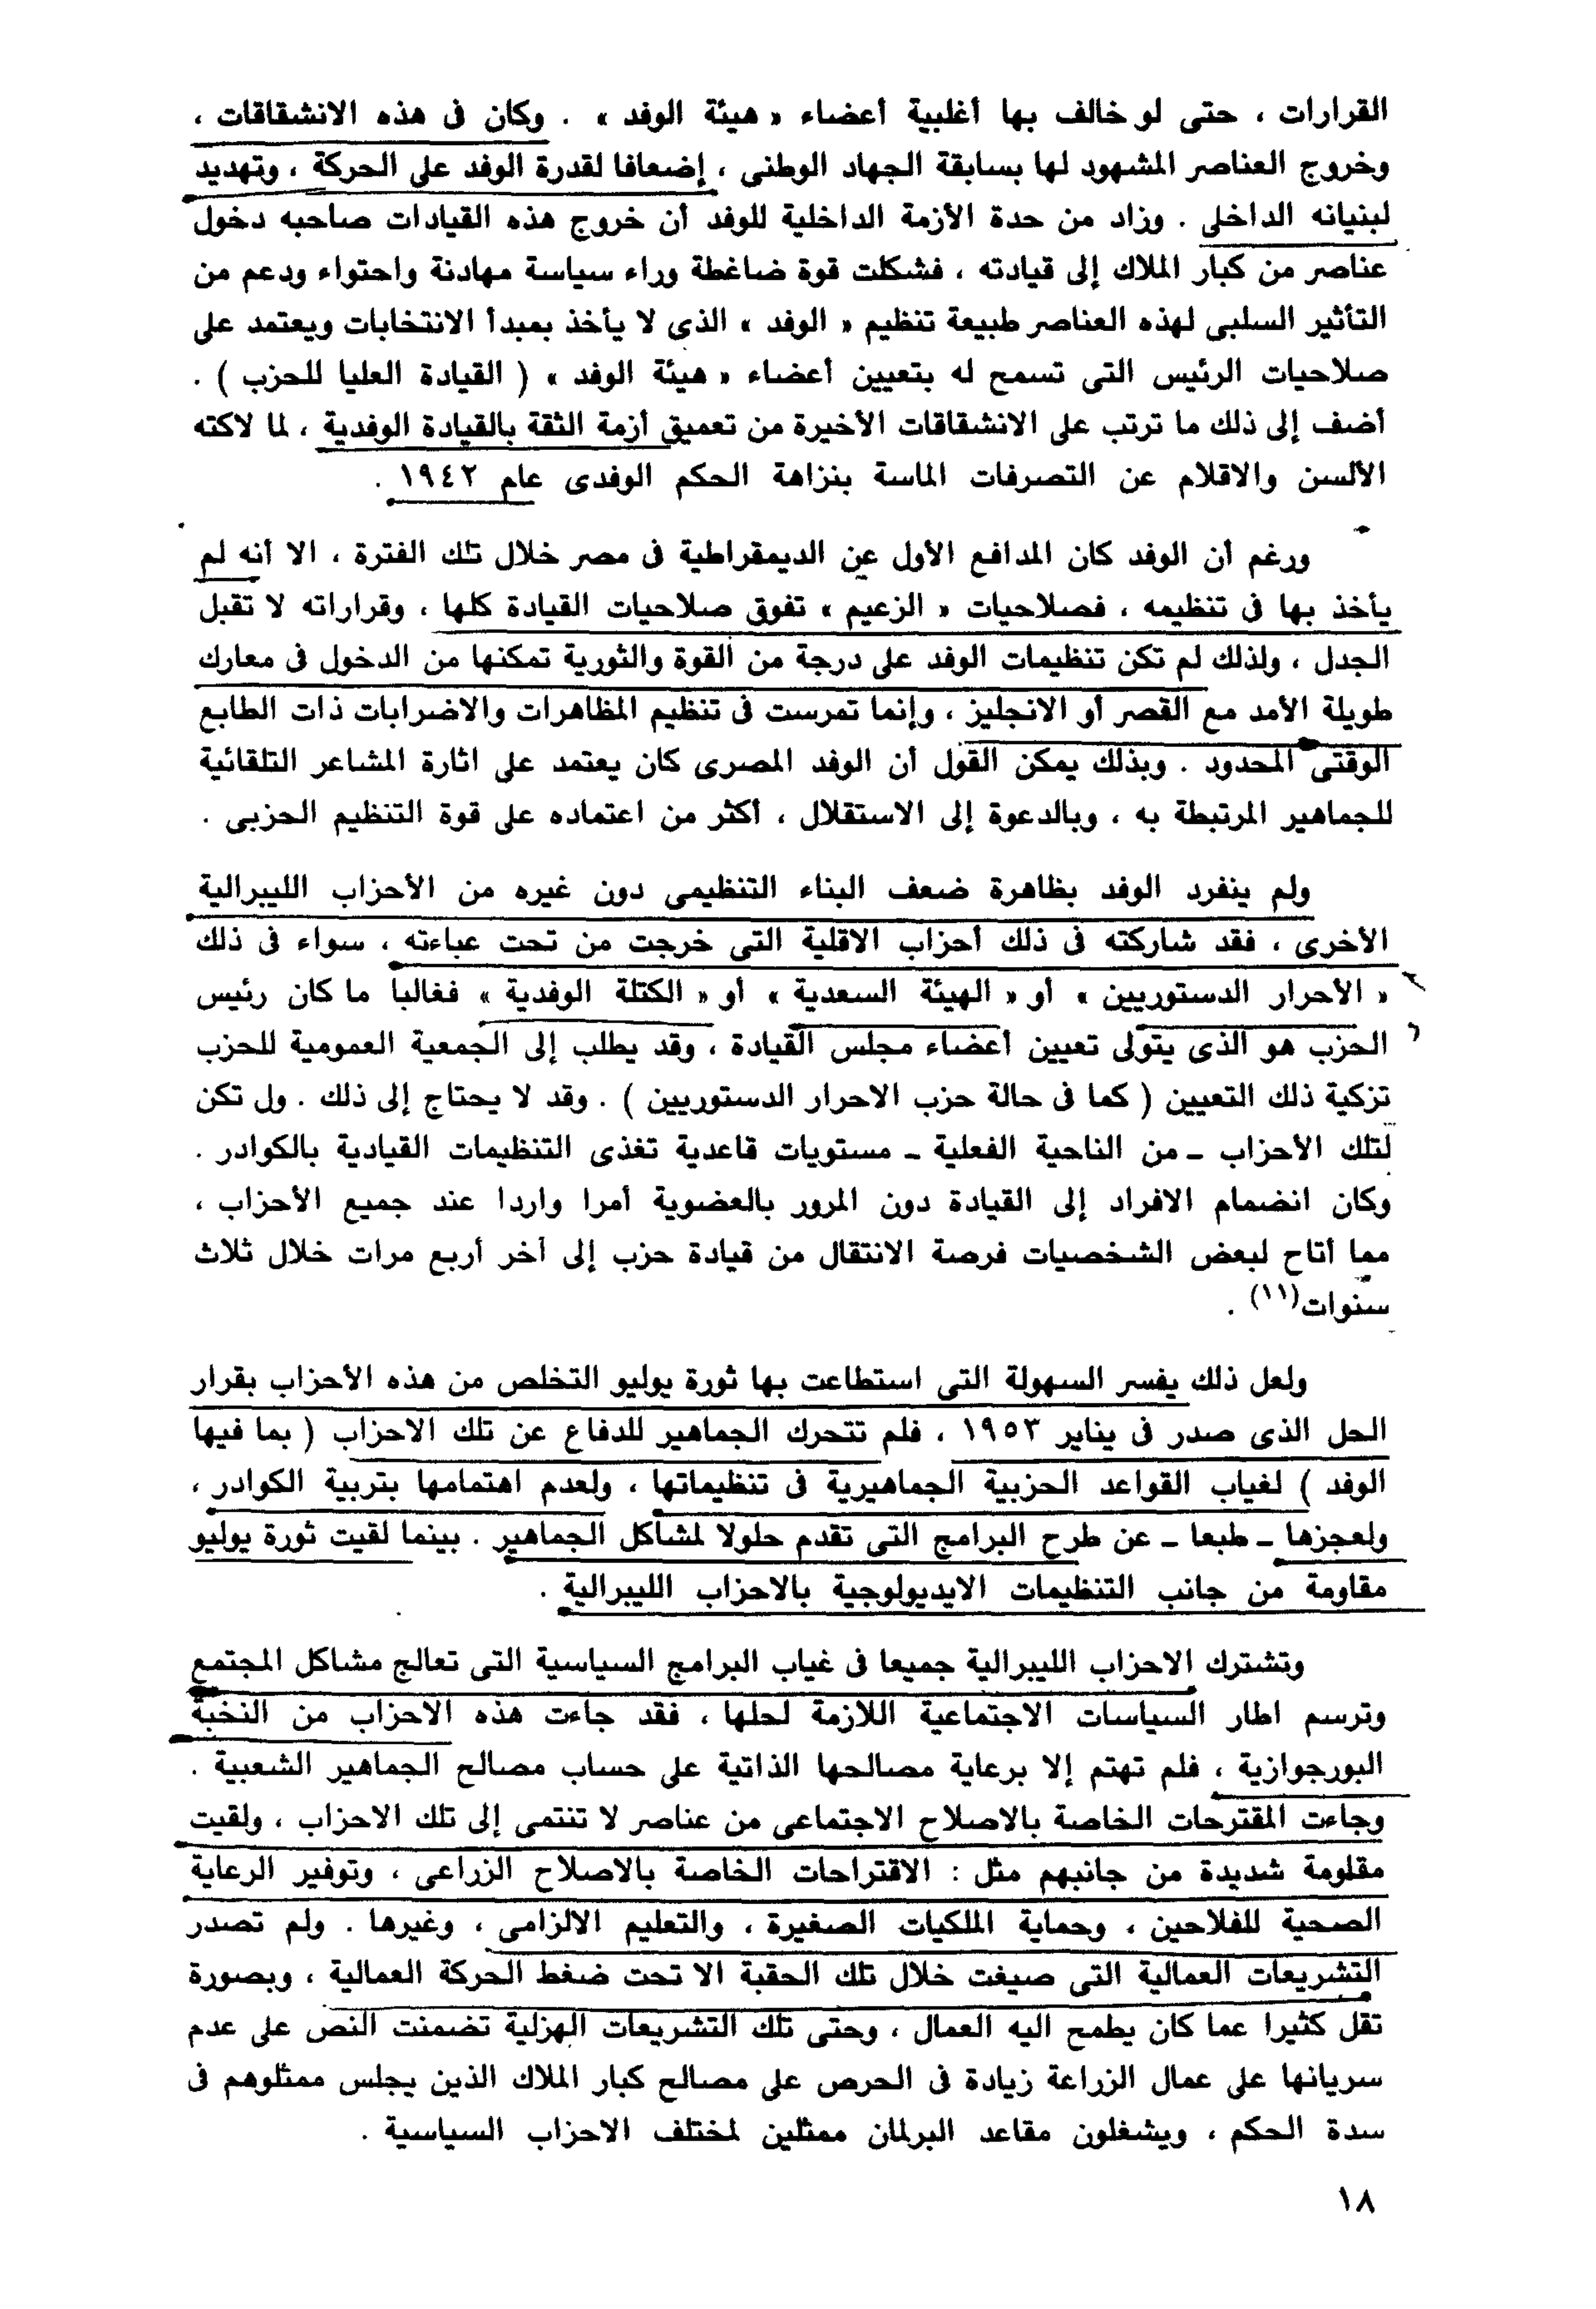 القرارات ، حتى لو خالف بها أغلبية أعضاء « هيئة الوفد » . وكان فى هذه الانشقاقات ،
وخروج العناصر المشهود لها بسابقة الجهاد الوطنى ، إضعافا لقدرة الوفد على الحركة ، وتهديد
لبنيانه الداخلى . وزاد من حدة الأزمة الداخلية للوفد أن خروج هذه القيادات صاحبه دخول
عناصر من كبار الملاك إلى قيادته ، فشكلت قوة ضاغطة وراء سياسة مهادنة واحتواء ودعم من
التأثير السلبى لهذه العناصر طبيعة تنظيم « الوفد » الذى لا يأخذ بمبدأ الانتخابات ويعتمد على
صلاحيات الرئيس التى تسمح له بتعيين أعضاء « هيئة الوفد » ( القيادة العليا للحزب ) .
أضف إلى ذلك ما ترتب على الانشقاقات الأخيرة من تعميق أزمة الثقة بالقيادة الوفدية ، لما لاكته
الألسن والاقلام عن التصرفات الماسة بنزاهة الحكم الوفدى عام ١٩٤٢ .
ورغم أن الوفد كان المدافع الأول عن الديمقراطية فى مصر خلال تلك الفترة ، الا أنه لم
يأخذ بها فى تنظيمه ، فصلاحيات « الزعيم » تفوق صلاحيات القيادة كلها ، وقراراته لا تقبل
الجدل ، ولذلك لم تكن تنظيمات الوفد على درجة من القوة والثورية تمكنها من الدخول فى معارك
طويلة الأمد مع القصر أو الانجليز ، وإنما تمرست فى تنظيم المظاهرات والاضرابات ذات الطابع
الوقتى المحدود . وبذلك يمكن القول أن الوفد المصرى كان يعتمد على اثارة المشاعر التلقائية
للجماهير المرتبطة به ، وبالدعوة إلى الاستقلال ، أكثر من اعتماده على قوة التنظيم الحزبى .
ولم ينفرد الوفد بظاهرة ضعف البناء التنظيمى دون غيره من الأحزاب الليبرالية
الأخرى ، فقد شاركته فى ذلك أحزاب الاقلية التى خرجت من تحت عباءته ، سواء فى ذلك
« الأحرار الدستوريين » أو « الهيئة السعدية » أو « الكتلة الوفدية » فغالبا ما كان رئيس
الحزب هو الذى يتولى تعيين أعضاء مجلس القيادة ، وقد يطلب إلى الجمعية العمومية للحزب
تزكية ذلك التعيين ( كما فى حالة حزب الاحرار الدستوريين ) . وقد لا يحتاج إلى ذلك . ول تكن
لتلك الأحزاب ـ من الناحية الفعلية ـ مستويات قاعدية تغذى التنظيمات القيادية بالكوادر .
وكان انضمام الافراد إلى القيادة دون المرور بالعضوية أمرا واردا عند جميع الأحزاب ،
مما أتاح لبعض الشخصيات فرصة الانتقال من قيادة حزب إلى أخر أربع مرات خلال ثلاث
سنوات(١١) .
ولعل ذلك يفسر السهولة التى استطاعت بها ثورة يوليو التخلص من هذه الأحزاب بقرار
الحل الذى صدر فى يناير ١٩٥٣ ، فلم تتحرك الجماهير للدفاع عن تلك الاحزاب ( بما فيها
الوفد ) لغياب القواعد الحزبية الجماهيرية فى تنظيماتها ، ولعدم اهتمامها بتربية الكوادر ،
ولعجزها ـ طبعا ـ عن طرح البرامج التى تقدم حلولا لمشاكل الجماهير . بينما لقيت ثورة يوليو
مقاومة من جانب التنظيمات الايديولوجية بالاحزاب الليبرالية .
وتشترك الاحزاب الليبرالية جميعا فى غياب البرامج السياسية التى تعالج مشاكل المجتمع
وترسم اطار السياسات الاجتماعية اللازمة لحلها ، فقد جاءت هذه الاحزاب من النخبة
البورجوازية ، فلم تهتم إلا برعاية مصالحها الذاتية على حساب مصالح الجماهير الشعبية .
وجاءت المقترحات الخاصة بالاصلاح الاجتماعى من عناصر لا تنتمى إلى تلك الاحزاب ، ولقيت
مقلومة شديدة من جانبهم مثل : الاقتراحات الخاصة بالاصلاح الزراعى ، وتوفير الرعاية
الصحية للفلاحين ، وحماية الملكيات الصغيرة ، والتعليم الالزامى ، وغيرها . ولم تصدر
التشريعات العمالية التى صيغت خلال تلك الحقبة الا تحت ضغط الحركة العمالية ، وبصورة
تقل كثيرا عما كان يطمح اليه العمال ، وحتى تلك التشريعات الهزلية تضمنت النص على عدم
سريانها على عمال الزراعة زيادة فى الحرص على مصالح كبار الملاك الذين يجلس ممثلوهم فى
سدة الحكم ، ويشغلون مقاعد البرلمان ممثلين لمختلف الاحزاب السياسية .
١٨